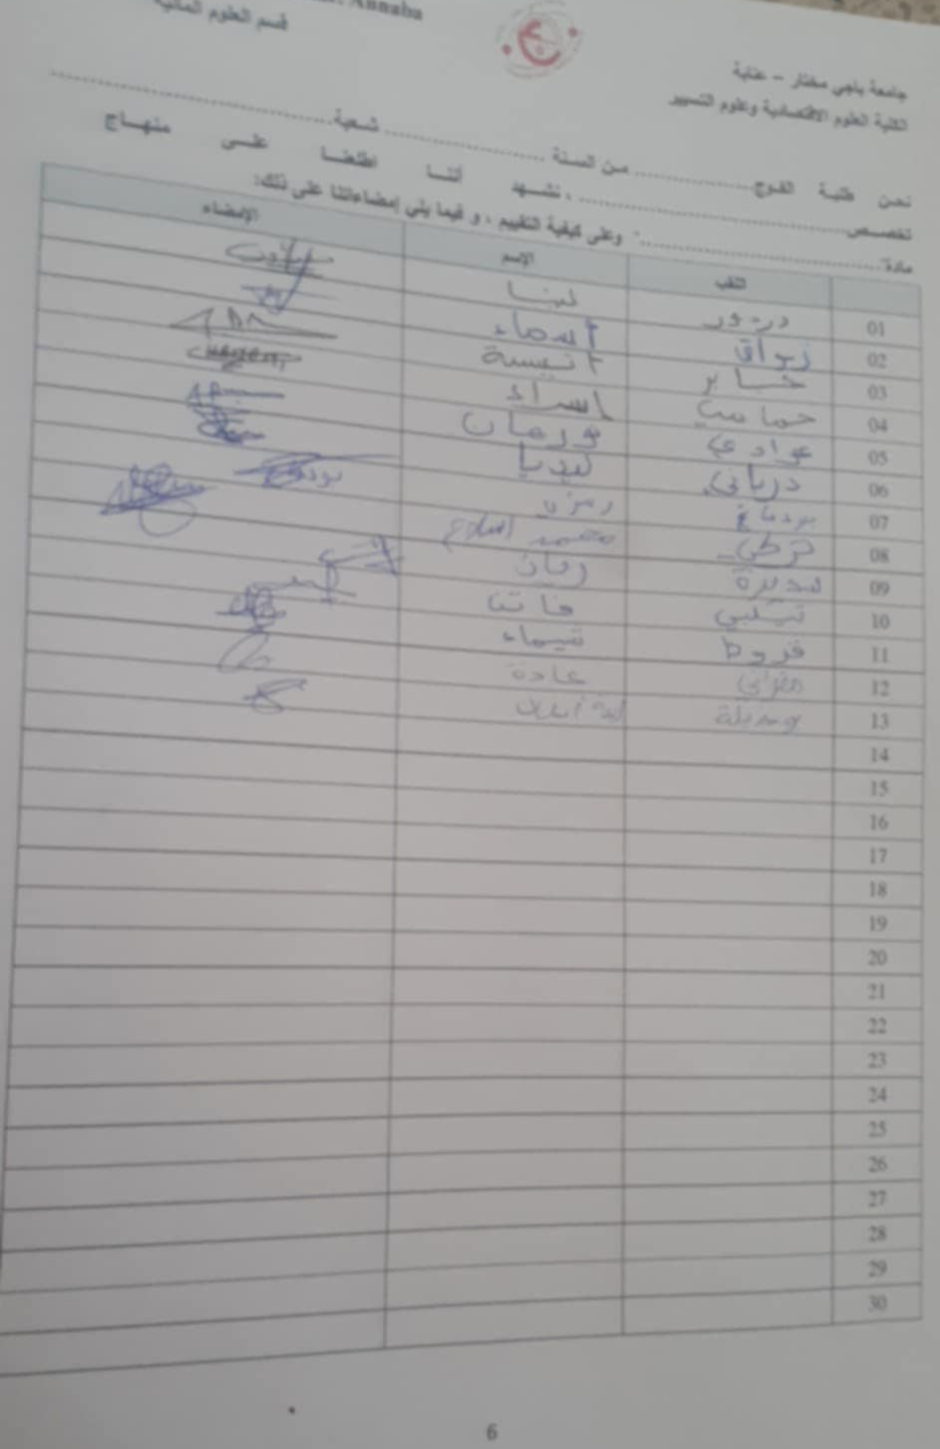 Annaba
قسم العلوم المالية
جامعة باجي مختار - عنابة
الكلية العلوم الاقتصادية وعلوم التسيير
نحن طلبة الفوج................من السنة ................شعبة................
تخصص................، نشهد أننا اطلعنا على منهاج
مادة................. وعلى كيفية التقييم ، و فيما يلي إمضاءاتنا على ذلك:
اللقب الإسم الإمضاء
01 دريور لينا
02 زواق أسماء
03 خساير أنيسة
04 حماسي إسراء
05 عوادي نورهان
06 درياني ليديا
07 بودماغ رمزي
08 تركي محمد إسلام
09 سديرة ريان
10 فاتن
11 قروط شيماء
12 غادة
13
14
15
16
17
18
19
20
21
22
23
24
25
26
27
28
29
30
6